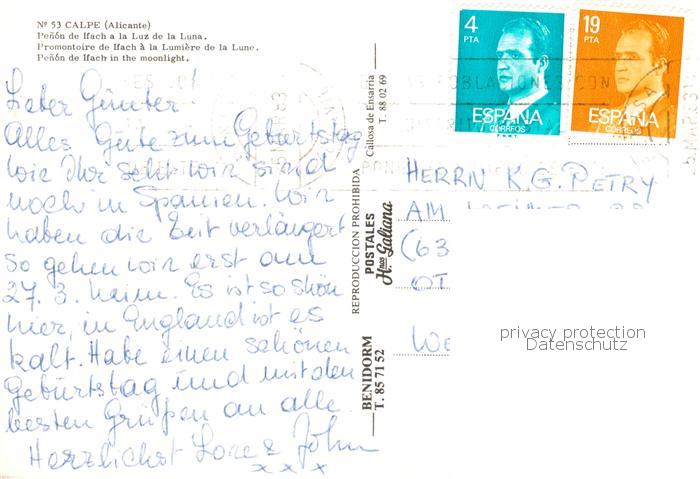 Nº 53 CALPE (Alicante)
Peñón de Ifach a la Luz de la Luna.
Promontoire de Ifach à la Lumière de la Lune.
Peñón de Ifach in the moonlight.
Lieber Günter!
Alles Gute zum Geburtstag
wie Ihr seht wir sind
noch in Spanien. Wir
haben die Zeit verlängert
so gehen wir erst am
27. 3. heim. Es ist so schön
hier, in England ist es
kalt. Habe einen schönen
Geburtstag und mit den
besten Grüßen an alle
Herzlichst Lore & John
x x x
Callosa de Ensarria
T. 88 02 69
REPRODUCCION PROHIBIDA
POSTALES
Hnos Galiana
BENIDORM
T. 85 71 52
4
PTA
ESPAÑA
CORREOS
F.N.M.T.
19
PTA
ESPAÑA
CORREOS
F.N.M.T.
POBLACIONES CON
HERRN K.G. PETRY
AM
(63
privacy protection
Datenschutz